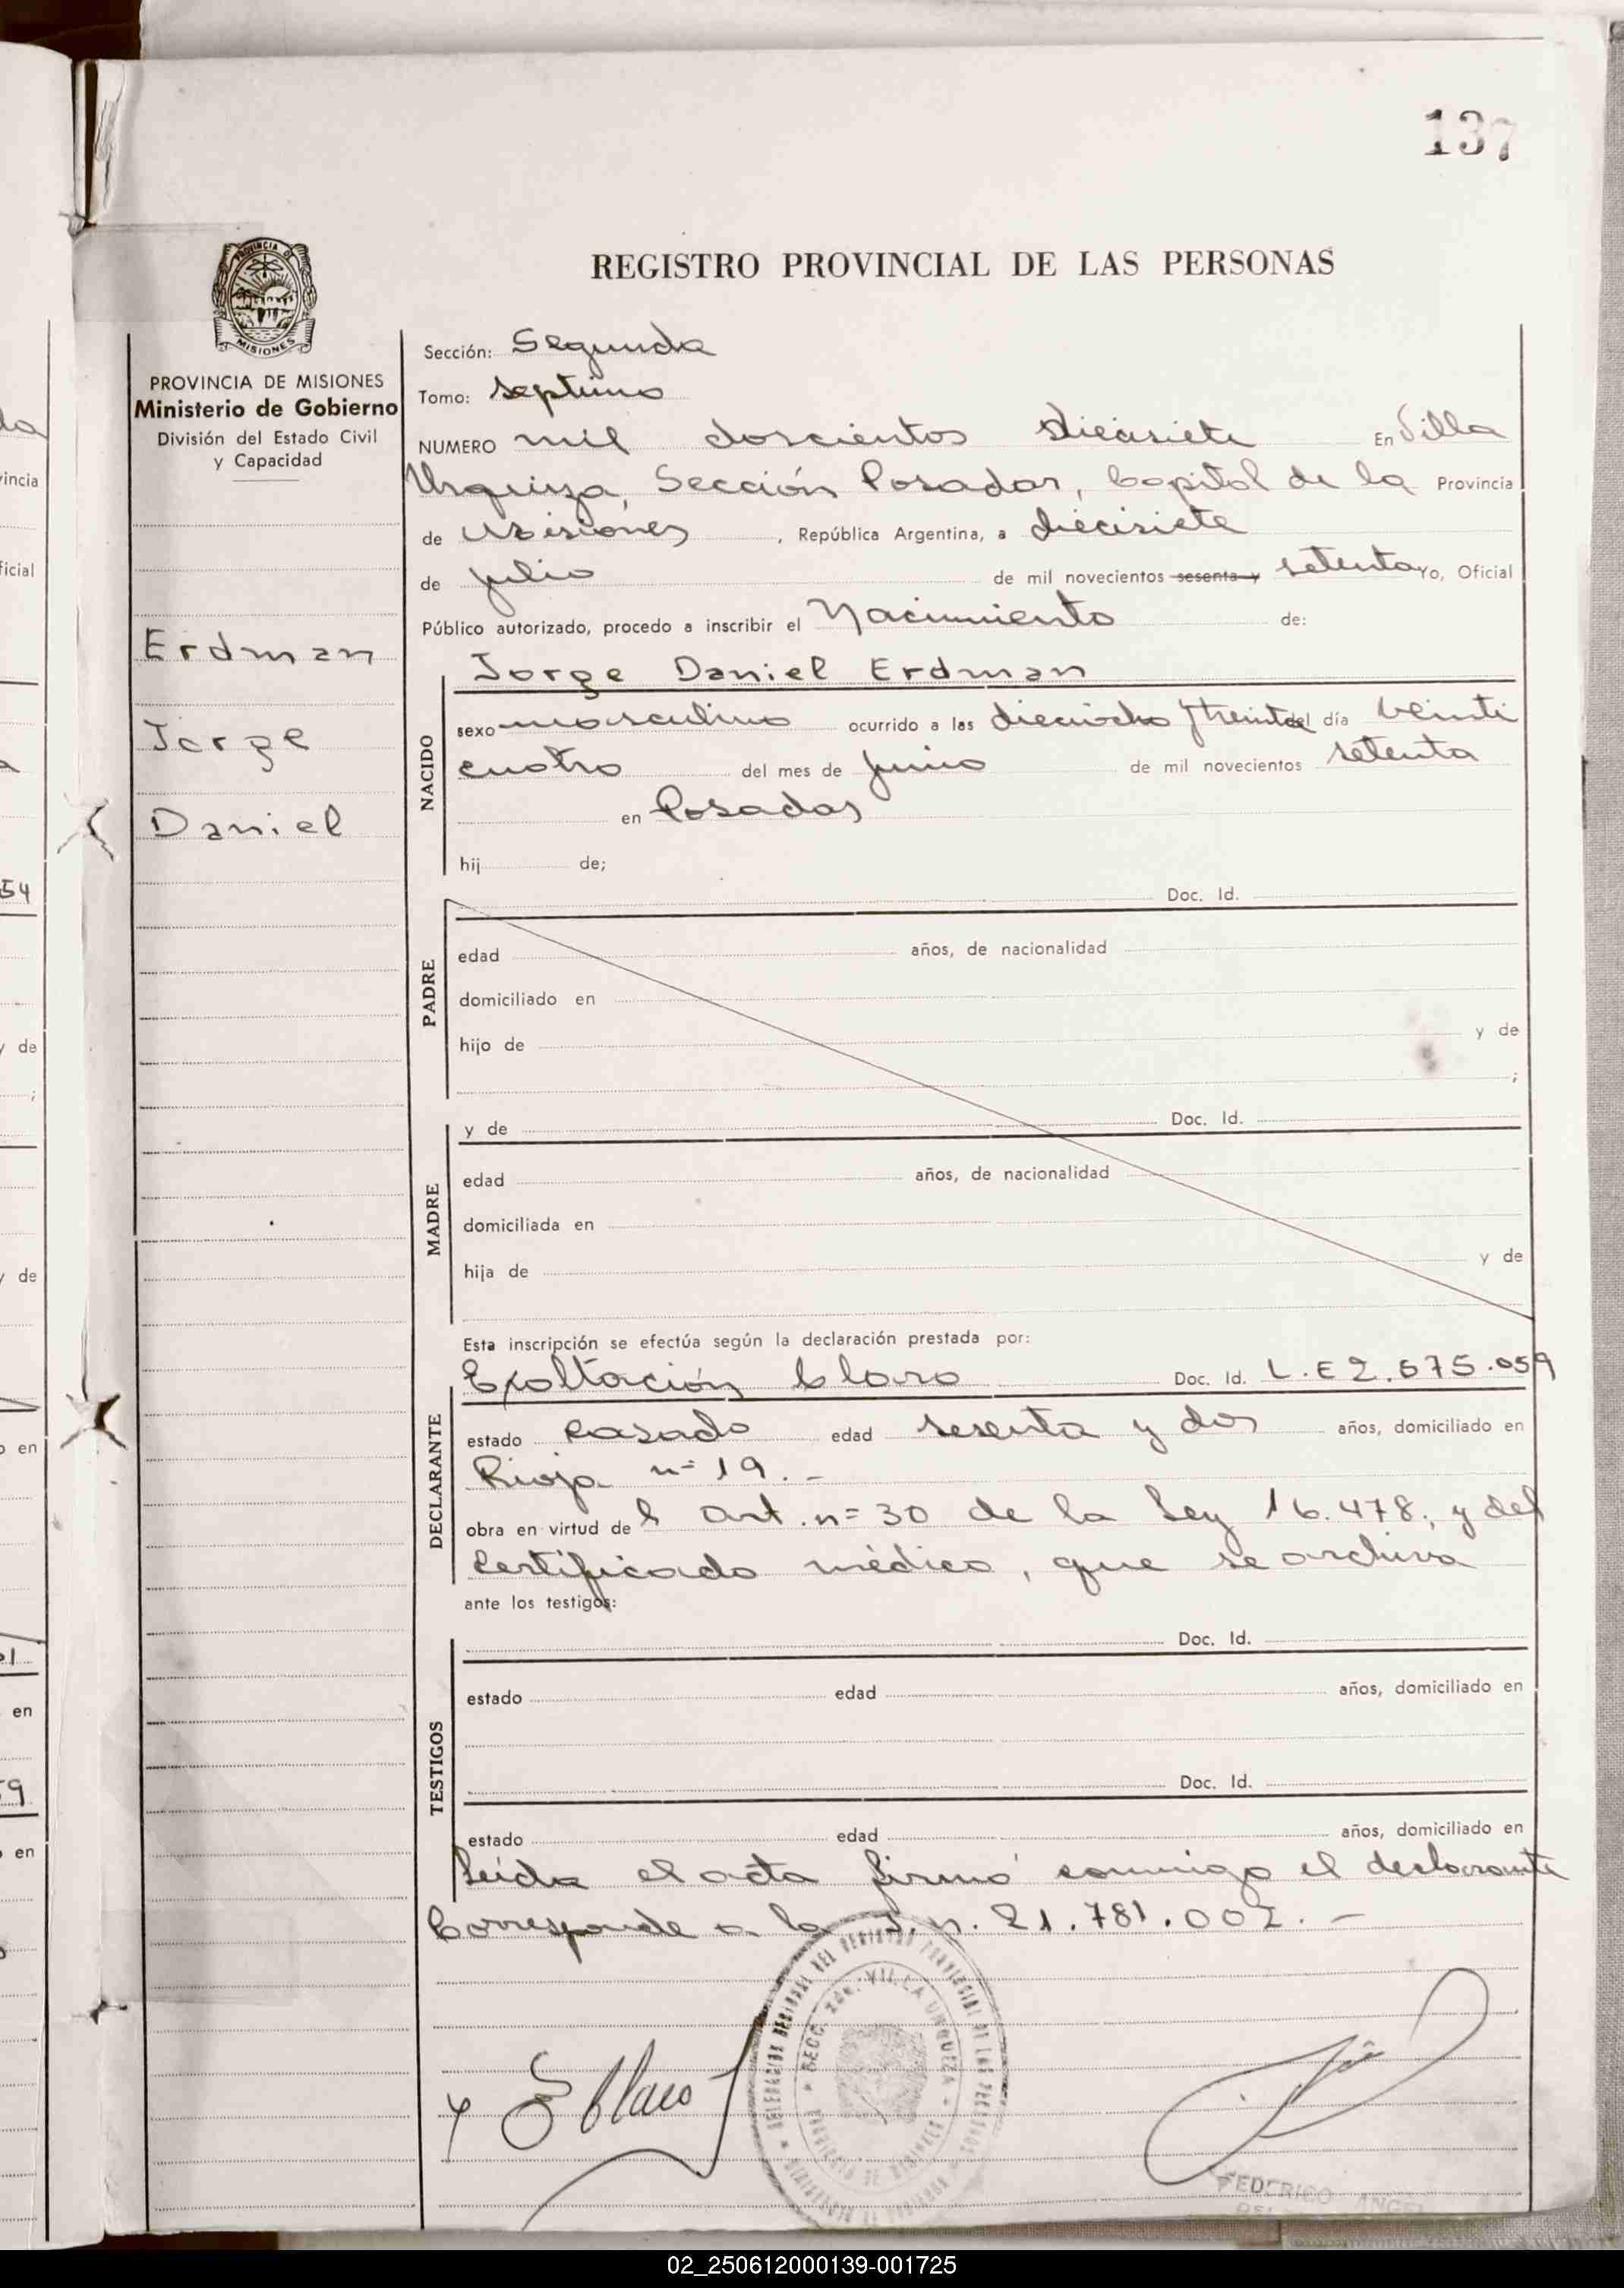 137
REGISTRO PROVINCIAL DE LAS PERSONAS
PROVINCIA DE
MISIONES
PROVINCIA DE MISIONES
Ministerio de Gobierno
División del Estado Civil
y Capacidad
Erdman
Jorge
Daniel
Sección: Segunda
Tomo: septimo
NUMERO mil doscientos diecisiete En Villa
Urquiza, Sección Posadas, Capital de la Provincia
de Misiones, República Argentina, a diecisiete
de julio de mil novecientos sesenta y setenta Yo, Oficial
Público autorizado, procedo a inscribir el Nacimiento de:
Jorge Daniel Erdman
NACIDO
sexo masculino ocurrido a las dieciocho y treinta del día veinti
cuatro del mes de junio de mil novecientos setenta
en Posadas
hij de;
Doc. Id.
PADRE
edad años, de nacionalidad
domiciliado en
hijo de y de
;
y de Doc. Id.
MADRE
edad años, de nacionalidad
domiciliada en
hija de y de
Esta inscripción se efectúa según la declaración prestada por:
Exaltación Claro Doc. Id. L.E 2.675.059
DECLARANTE
estado casado edad sesenta y dos años, domiciliado en
Rioja n=19.-
obra en virtud de l Art. n=30 de la Ley 16.478, y del
certificado médico, que se archiva
ante los testigos:
Doc. Id.
TESTIGOS
estado edad años, domiciliado en
Doc. Id.
estado edad años, domiciliado en
Leída el acta firmó conmigo el declarante
Corresponde a la I.n. 21.781.002.-
DELEGACION REGIONAL DEL REGISTRO PROVINCIAL DE LAS PERSONAS
SECC. VILLA URQUIZA
PROVINCIA DE MISIONES
E Claro
FEDERICO ANGEL
54
y de
y de
en
en
59
en
02_250612000139-001725